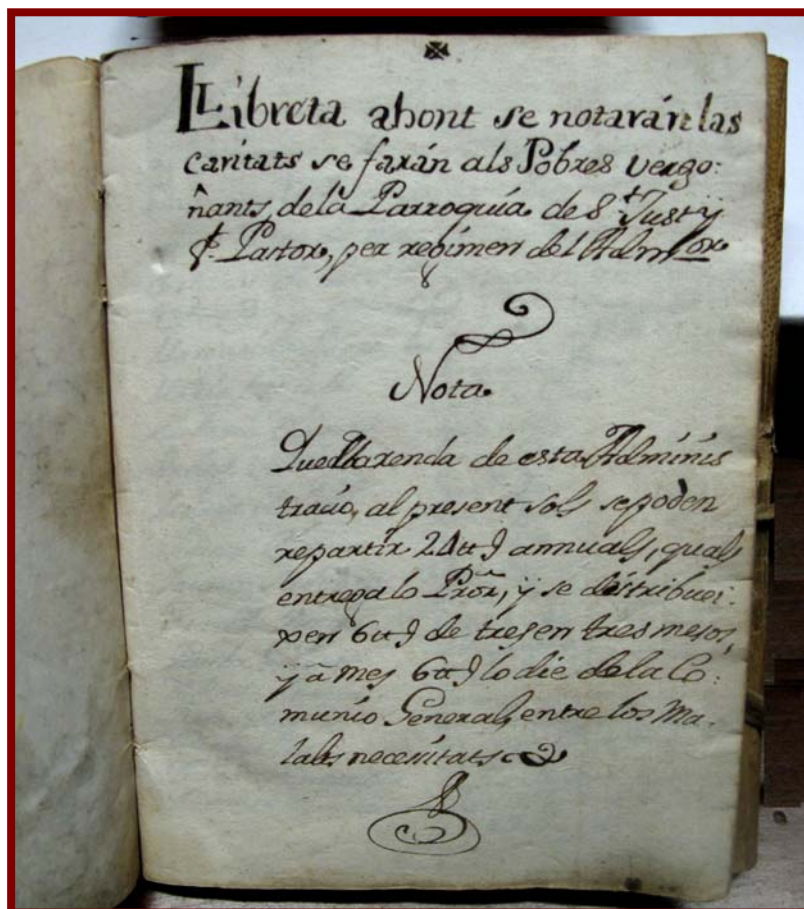 LLibreta ahont se notarán las
caritats se farán als Pobres vergo:
ñants, de la Parroquía de St. Just ÿ
St. Pastor, per regímen del Admor
Nota
Que de la renda de esta Adminis
tració, al present sols se poden
repartir 24 annuals, quals
entrega lo Pror, ÿ se distribuei:
xen 6 de tres en tres mesos,
ÿ a mes 6 lo die de la Co:
munio General, entre los Ma-
lalts necesitats